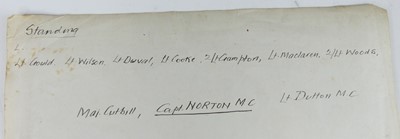 Standing
Lt Gould. Lt Wilson, Lt Duval, Lt Cooke, 2/Lt Crampton, Lt Maclaren, 2/Lt Woods,
Maj Cutbill, Capt. NORTON M.C Lt Dutton M.C.